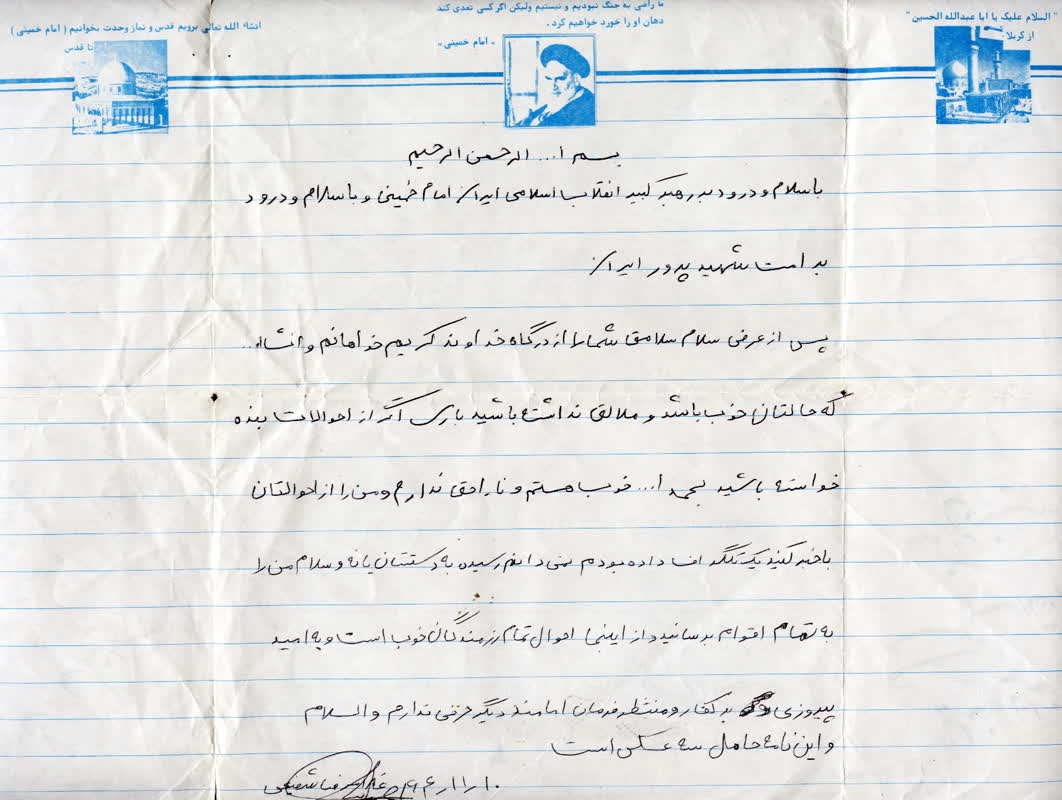 " السلام علیک یا ابا عبدالله الحسین "
از کربلا
ما راضی به جنگ نبودیم و نیستیم ولیکن اگر کسی تعدی کند
دهان او را خورد خواهیم کرد .
« امام خمینی »
انشاء الله تعالی برویم قدس و نماز وحدت بخوانیم ( امام خمینی )
تا قدس
بسم ا... الرحمن الرحیم
باسلام و درود بر رهبر کبیر انقلاب اسلامی ایران امام خمینی و باسلام و درود
بر امت شهید پرور ایران
پس از عرض سلام سلامتی شما را از درگاه خداوند کریم خواهانم و انشاا...
که حالتان خوب باشد و ملالتی نداشته باشید باری اگر از احوالات بنده
خواسته باشید بحمد ا... خوب هستم و ناراحتی ندارم و من را از احوالتان
باخبر کنید یک تلگراف داده بودم نمی دانم رسیده به دستتان یا نه و سلام من را
به تمام اقوام برسانید و از اینجا احوال تمام رزمندگان خوب است و به امید
پیروزی بر کفار و منتظر فرمان امامند دیگر حرفی ندارم والسلام
و این نامه حامل سه عکس است